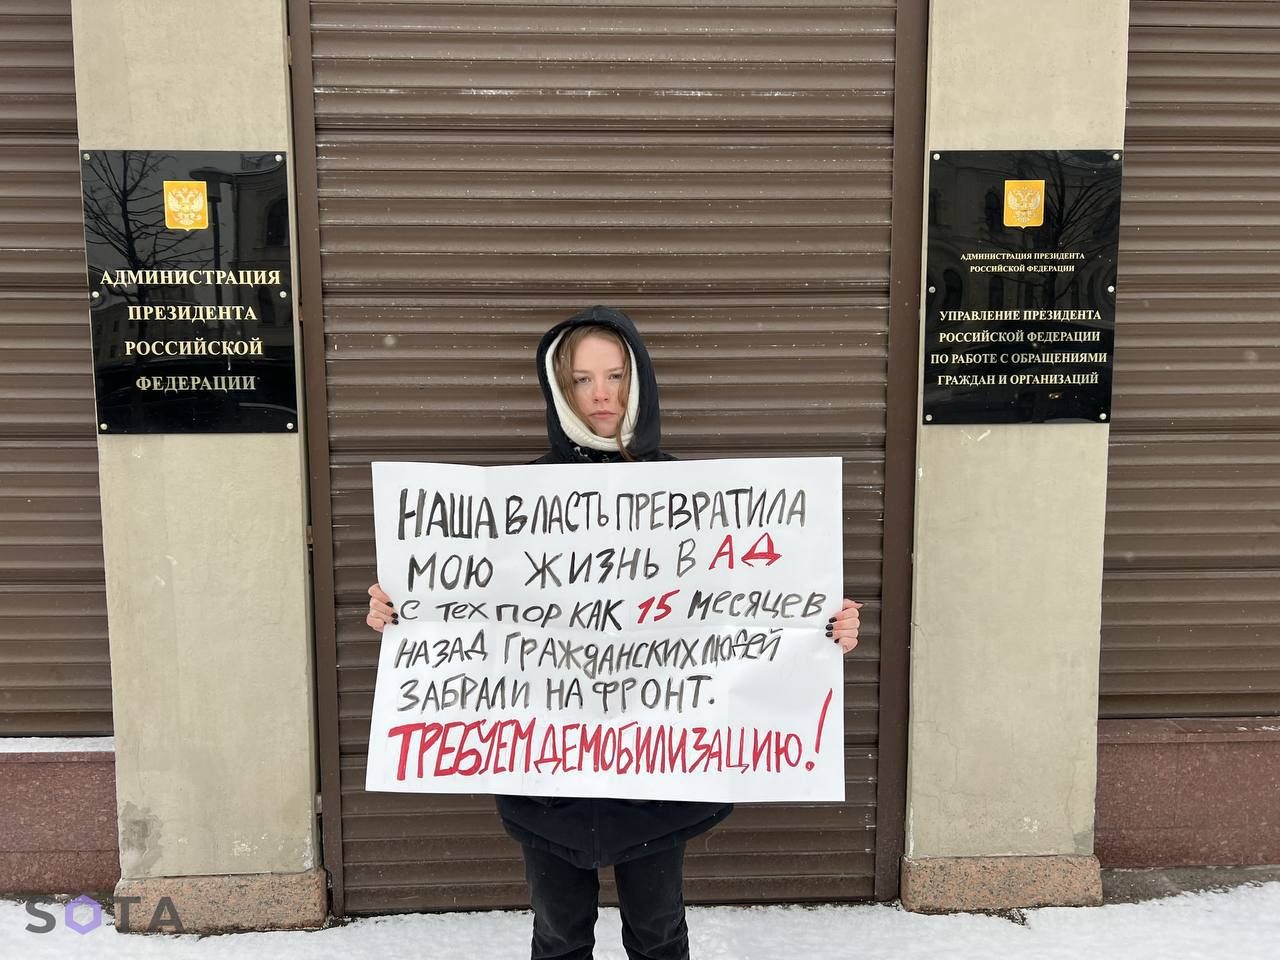 АДМИНИСТРАЦИЯ
ПРЕЗИДЕНТА
РОССИЙСКОЙ
ФЕДЕРАЦИИ
АДМИНИСТРАЦИЯ ПРЕЗИДЕНТА
РОССИЙСКОЙ ФЕДЕРАЦИИ
УПРАВЛЕНИЕ ПРЕЗИДЕНТА
РОССИЙСКОЙ ФЕДЕРАЦИИ
ПО РАБОТЕ С ОБРАЩЕНИЯМИ
ГРАЖДАН И ОРГАНИЗАЦИЙ
НАША ВЛАСТЬ ПРЕВРАТИЛА
МОЮ ЖИЗНЬ В АД
С ТЕХ ПОР КАК 15 МЕСЯЦЕВ
НАЗАД ГРАЖДАНСКИХ ЛЮДЕЙ
ЗАБРАЛИ НА ФРОНТ.
ТРЕБУЕМ ДЕМОБИЛИЗАЦИЮ!
SOTA